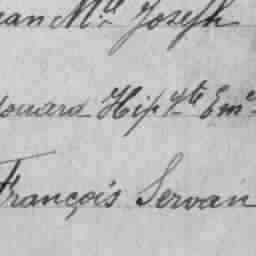 ean M.el Joseph
douard Hip.yte Em.e
François Servan